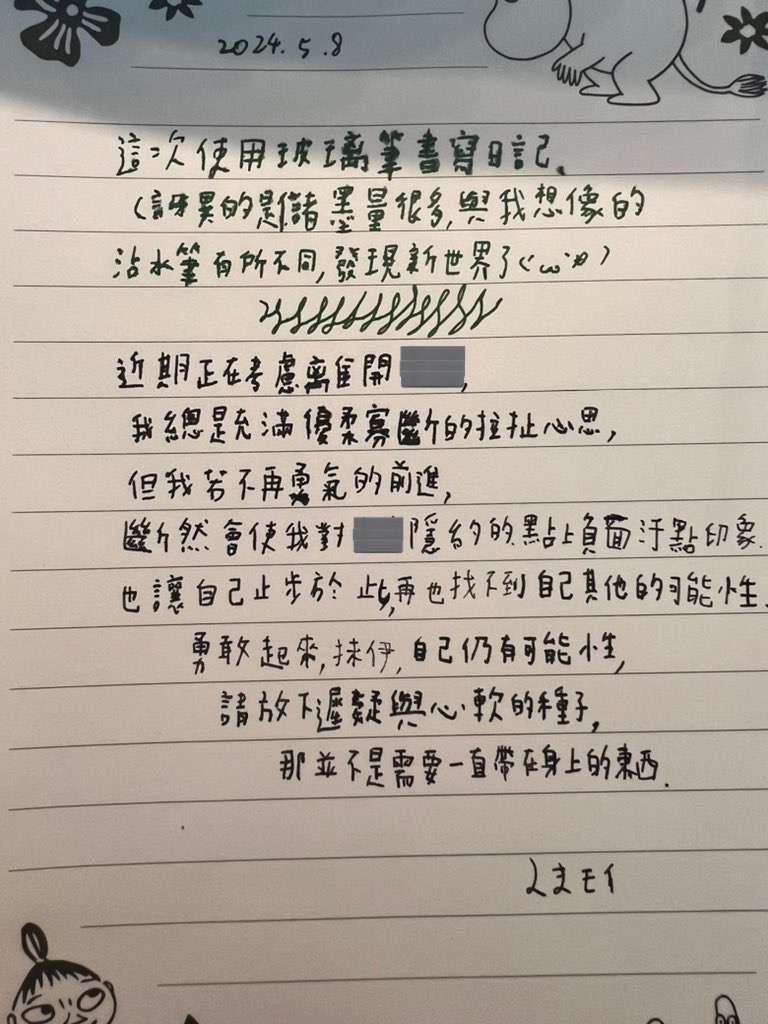 2024.5.8
這次使用玻璃筆書寫日記、
(訝異的是儲墨量很多,與我想像的
沾水筆有所不同,發現新世界了(´ω`*)
近期正在考慮離開,
我總是充滿優柔寡斷的拉扯心思,
但我若不再勇氣的前進,
斷然會使我對隱約的點上負面汙點印象.
也讓自己止步於此,再也找不到自己其他的可能性.
勇敢起來,抹伊,自己仍有可能性,
請放下遲疑與心軟的種子,
那並不是需要一直帶在身上的東西.
くまモイ